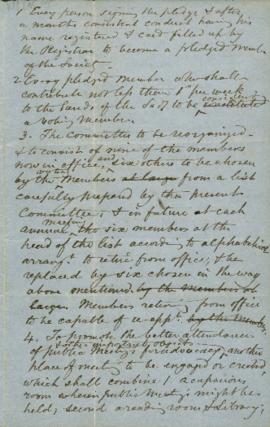 1 Every person signing the pledge & after
a months consistent conduct having his
name registered & card filled up by
the Registrar to become a pledged member
of the Society.
2 Every pledged member who shall
contribute not less than 1d per week
to the funds of the Socy to be considered
a voting member.
3. The Committee to be reorganized
& to consist of nine of the members
now in office, and six others to be chosen
by the members at large from a list
carefully prepared by the present
Committee, & in future at each
annual meeting, the six members at the
head of the list according to alphabetical
arrangt to retire from office, & be
replaced by six chosen in the way
above mentioned by the members at
large. Members retiring from office
to be capable of re appt. by the members
4. To promote the better attendance
of public Meetings & other important objects
place of meetg to be engaged or erected,
which shall combine 1 a capacious
room wherein public Meetgs might be
held; second a reading room & Library;